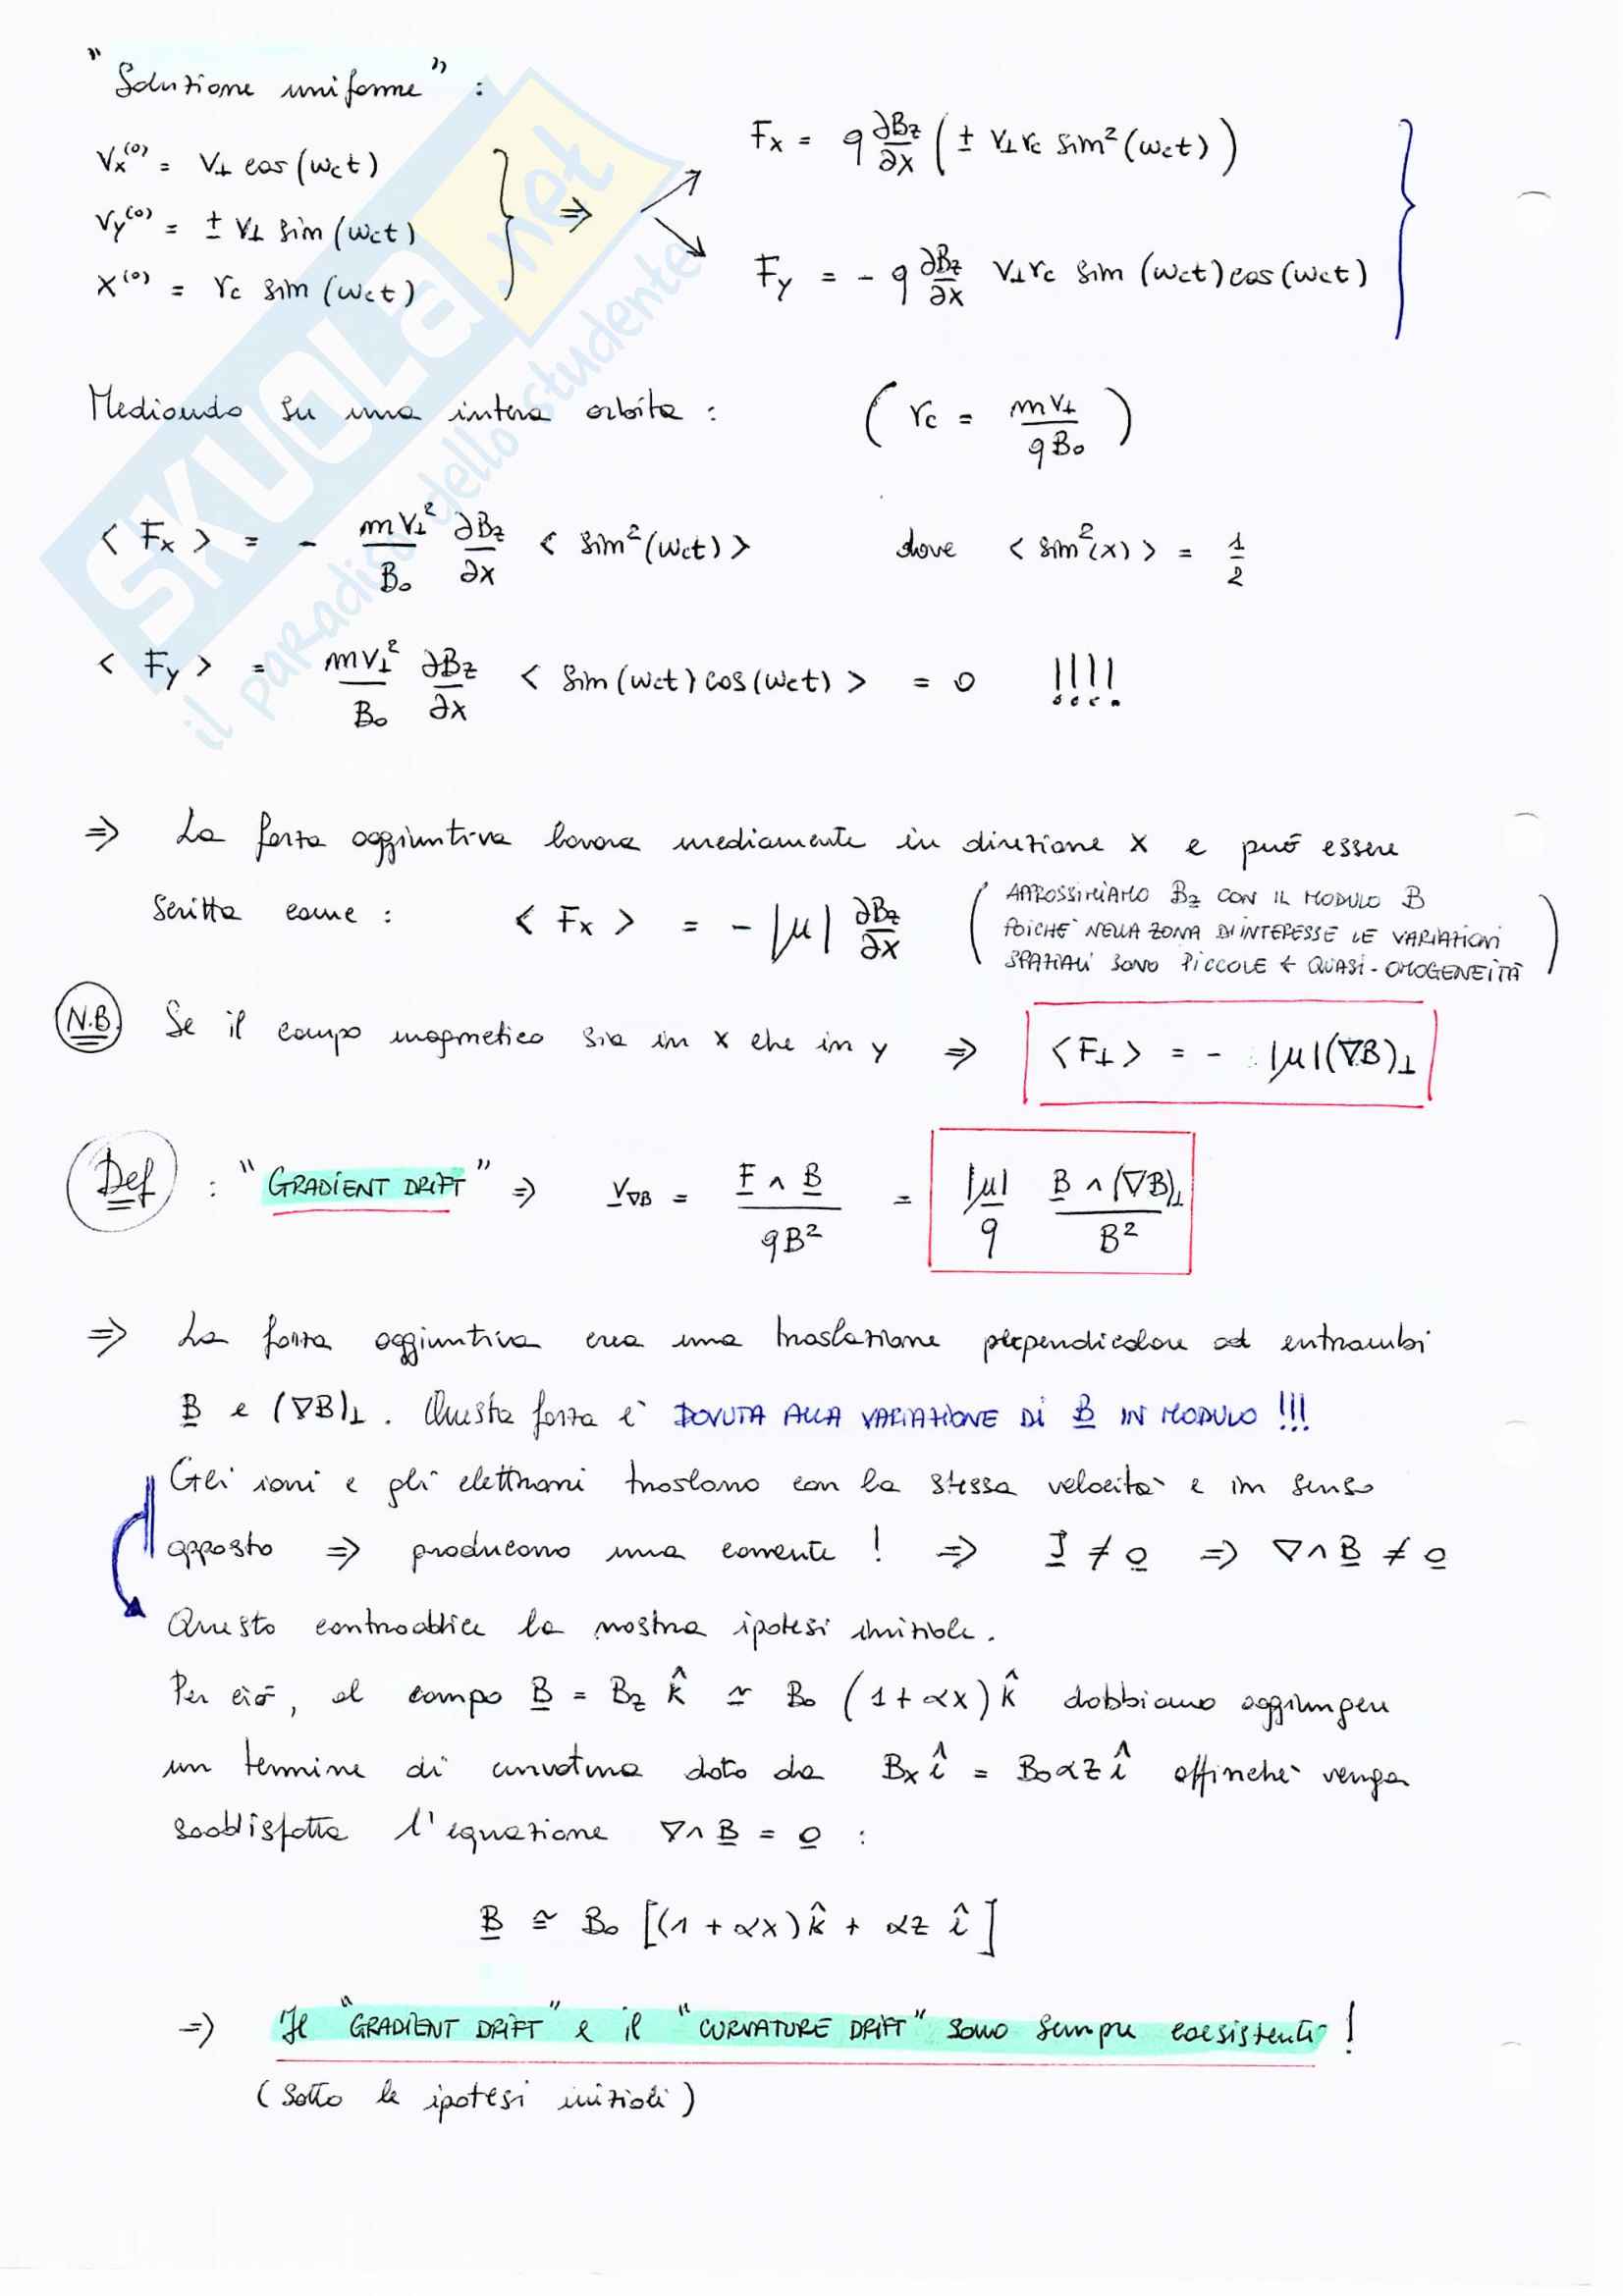 "Soluzione uniforme" :
Vx⁽⁰⁾ = V⊥ cos(ωct)
Vy⁽⁰⁾ = ± V⊥ sin(ωct)
X⁽⁰⁾ = rc sin(ωct)
⇒ Fx = q ∂Bz/∂x (± V⊥rc sin²(ωct))
Fy = - q ∂Bz/∂x V⊥rc sin(ωct)cos(ωct)
SKUOLA.net
il paradiso dello studente
Mediando su una intera orbita : (rc = mV⊥/qB₀)
< Fx > = - mV⊥²/B₀ ∂Bz/∂x < sin²(ωct) > dove < sin²(x) > = 1/2
< Fy > = mV⊥²/B₀ ∂Bz/∂x < sin(ωct)cos(ωct) > = 0 !!!!
⇒ La forza aggiuntiva lavora mediamente in direzione x e può essere
scritta come : < Fx > = - |μ| ∂Bz/∂x
(APPROSSIMIAMO Bz CON IL MODULO B
POICHÈ NELLA ZONA DI INTERESSE LE VARIAZIONI
SPAZIALI SONO PICCOLE ← QUASI-OMOGENEITÀ)
N.B. Se il campo magnetico sia in x che in y ⇒ <F⊥> = - |μ|(∇B)⊥
Def : "GRADIENT DRIFT" ⇒ V∇B = F ∧ B / qB² = |μ|/q B ∧ (∇B)⊥ / B²
⇒ La forza aggiuntiva crea una traslazione perpendicolare ad entrambi
B e (∇B)⊥. Questa forza è DOVUTA ALLA VARIAZIONE DI B IN MODULO !!!
Gli ioni e gli elettroni traslano con la stessa velocità e in senso
opposto ⇒ producono una corrente ! ⇒ J ≠ 0 ⇒ ∇∧B ≠ 0
Questo contraddice la nostra ipotesi iniziale.
Per ciò, al campo B = Bz k̂ ≃ B₀ (1+αx) k̂ dobbiamo aggiungere
un termine di curvatura dato da Bx î = B₀αz î affinchè venga
soddisfatta l'equazione ∇∧B = 0 :
B ≅ B₀ [(1+αx)k̂ + αz î]
⇒ Il "GRADIENT DRIFT" e il "CURVATURE DRIFT" sono sempre coesistenti !
(Sotto le ipotesi iniziali)